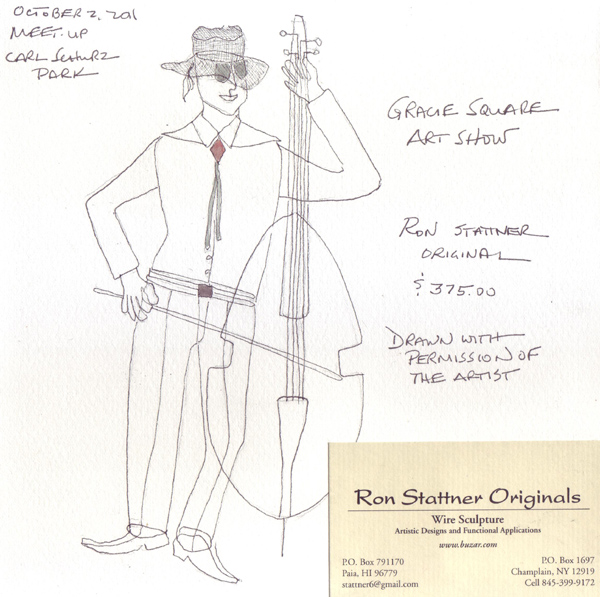 OCTOBER 2, 201
MEET-UP
CARL SCHURZ
PARK
GRACIE SQUARE
ART SHOW
RON STATTNER
ORIGINAL
$375.00
DRAWN WITH
PERMISSION OF
THE ARTIST
Ron Stattner Originals
Wire Sculpture
Artistic Designs and Functional Applications
www.buzar.com
P.O. Box 791170
Paia, HI 96779
stattner6@gmail.com
P.O. Box 1697
Champlain, NY 12919
Cell 845-399-9172